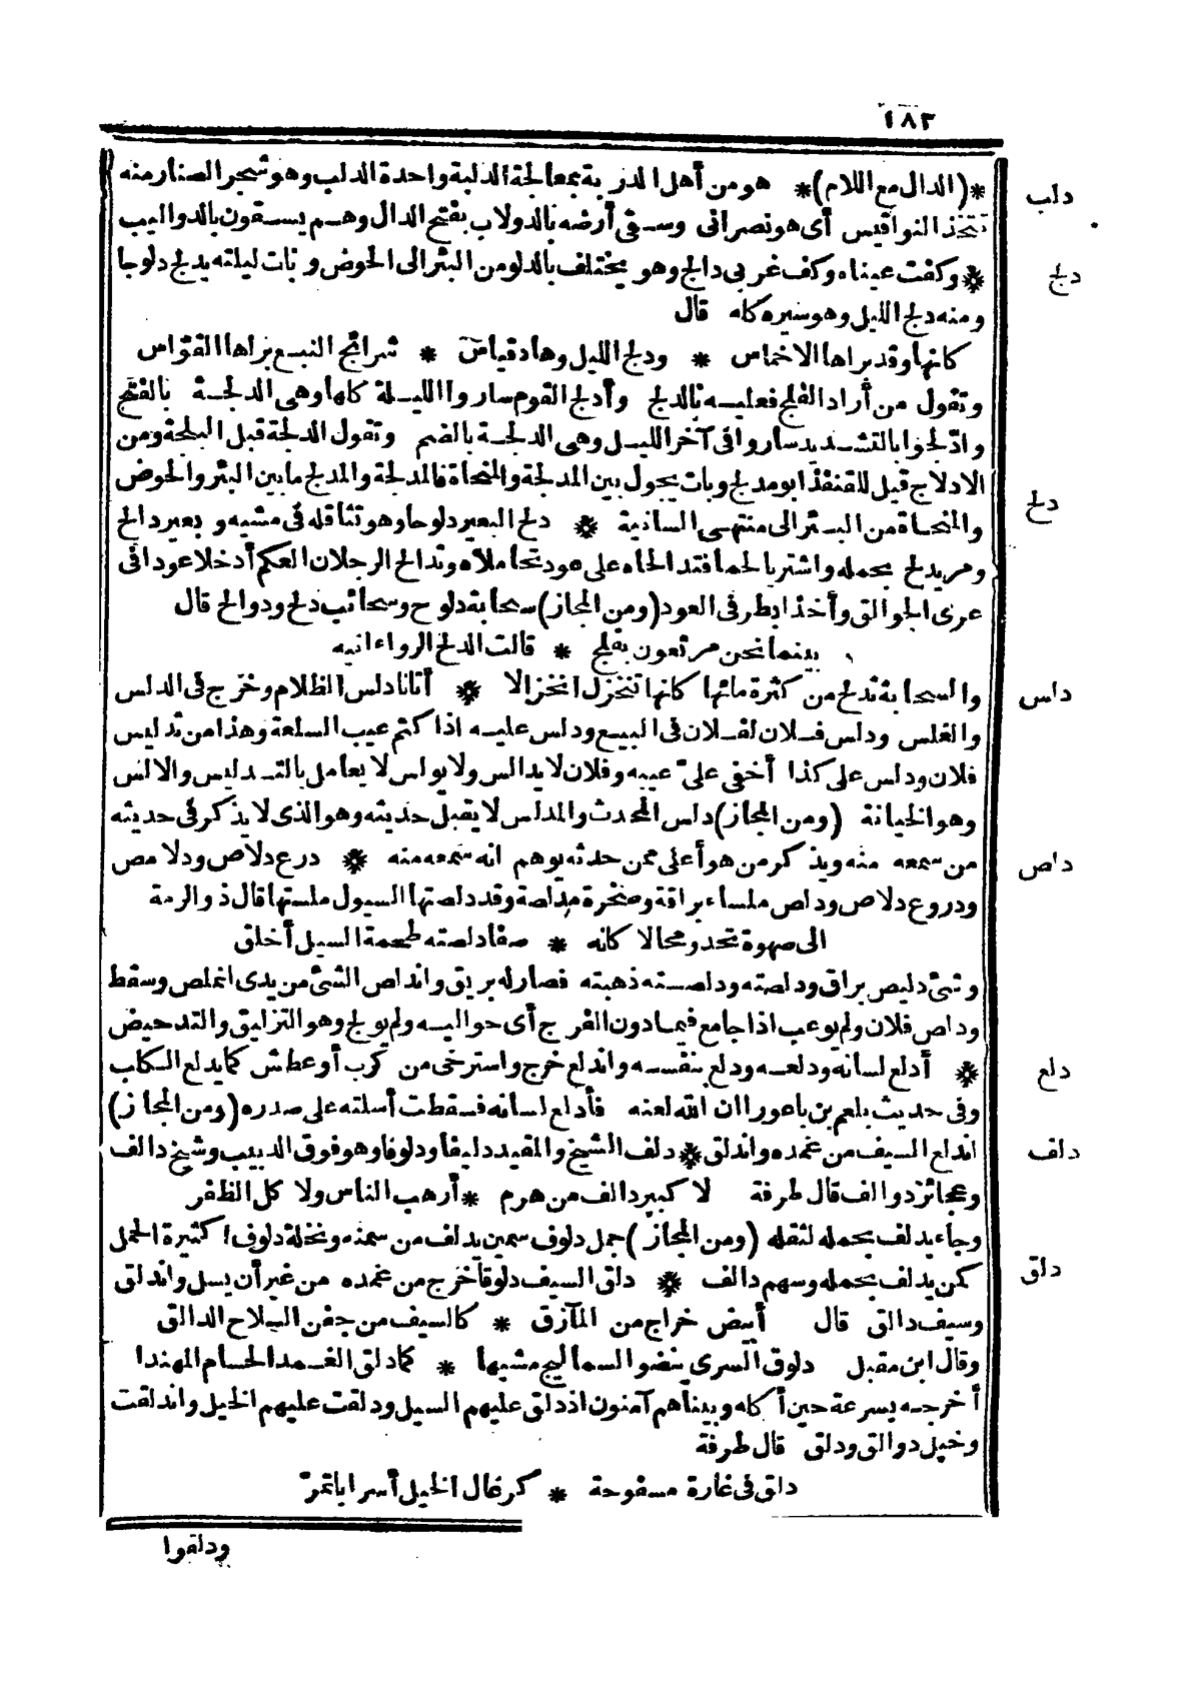 ١٨٣
*(الدال مع اللام)* هو من أهل الدربة بمعالجة الدلبة واحدة الدلب وهو شجر الصنار منه
دلب
تتخذ النواقيس أى هو نصرانى وسقى أرضه بالدولاب بفتح الدال وهم يسقون بالدواليب
* وكفت عيناه وكف غربى دالج وهو يختلف بالدلو من البئر الى الحوض وبات ليلته يدلج دلوجا
دلج
ومنه دلج الليل وهو سيره كله قال
كانها وقد براها الاخماس * ودلج الليل وهاد قياس * شرائج النبع براها القواس
وتقول من أراد الفلج فعليه بالدلج وأدلج القوم ساروا الليلة كلها وهى الدلجة بالفتح
وادّلجوا بالتشديد ساروا فى آخر الليل وهى الدلجة بالضم وتقول الدلجة قبل البلجة ومن
الادلاج قيل للقنفذ ابو مدلج وبات يجول بين المدلجة والمنحاة فالمدلجة والمدلج ما بين البئر والحوض
والمنحاة من البئر الى منتهى السانية * دلح البعير دلوحا وهو تثاقله فى مشيه وبعير دالح
دلح
ومر يدلح بحمله واشتريا لحما فتدالحاه على عود تحاملاه وتدالح الرجلان العكم أدخلا عودا فى
عرى الجوالق وأخذا بطرفى العود (ومن المجاز) سحابة دلوح وسحائب دلح ودوالح قال
بينما نحن مرتعون بفلج * قالت الدلح الرواء انيه
والسحابة تدلح من كثرة مائها كانها تنخزل انخزالا * أتانا دلس الظلام وخرج فى الدلس
دلس
والغلس ودلس فلان لفلان فى البيع ودلس عليه اذا كتم عيب السلعة وهذا من تدليس
فلان ودلس على كذا أخفى علىّ عيبه وفلان لا يدالس ولا يوالس لا يعامل بالتدليس والالس
وهو الخيانة (ومن المجاز) دلس المحدث والمدلس لا يقبل حديثه وهو الذى لا يذكر فى حديثه
من سمعه منه ويذكر من هو أعلى ممن حدثه يوهم انه سمعه منه * درع دلاص ودلامص
دلص
ودروع دلاص ودلص ملساء براقة وصخرة مدلصة وقد دلصتها السيول ملستها قال ذو الرمة
الى صهوة تحدو محالا كانه * صفا دلصته طحمة السيل أخلق
وشئ دليص براق ودلصته ودلصته ذهبته فصار له بريق واندلص الشئ من يدى انملص وسقط
ودلص فلان ولم يوعب اذا جامع فيما دون الفرج أى حواليه ولم يولج وهو التزليق والتدحيض
* أدلع لسانه ودلعه ودلع بنفسه واندلع خرج واسترخى من كرب أو عطش كما يدلع الكلب
دلع
وفى حديث بلعم بن باعورا ان الله لعنه فأدلع لسانه فسقطت أسلته على صدره (ومن المجاز)
اندلع السيف من غمده واندلق * دلف الشيخ والمقيد دليفا ودلوفا وهو فوق الدبيب وشيخ دالف
دلف
وعجائز دوالف قال طرفة لا كبير دالف من هرم * أرهب الناس ولا كل الظفر
وجاء يدلف بحمله لثقله (ومن المجاز) جمل دلوف سمين يدلف من سمنه ونخلة دلوف كثيرة الحمل
كمن يدلف بحمله وسهم دالف * دلق السيف دلوقا خرج من غمده من غير أن يسل واندلق
دلق
وسيف دالق قال أبيض خراج من المآزق * كالسيف من جفن السلاح الدالق
وقال ابن مقبل دلوق السرى ينضو السماليج مشيها * كما دلق الغمد الحسام المهندا
أخرجه بسرعة حين أكله وبيناهم آمنون اذ دلق عليهم السيل ودلقت عليهم الخيل واندلقت
وخيل دوالق ودلق قال طرفة
دلق فى غارة مسفوحة * كرعال الخيل أسرابا تمرّ
ودلقوا